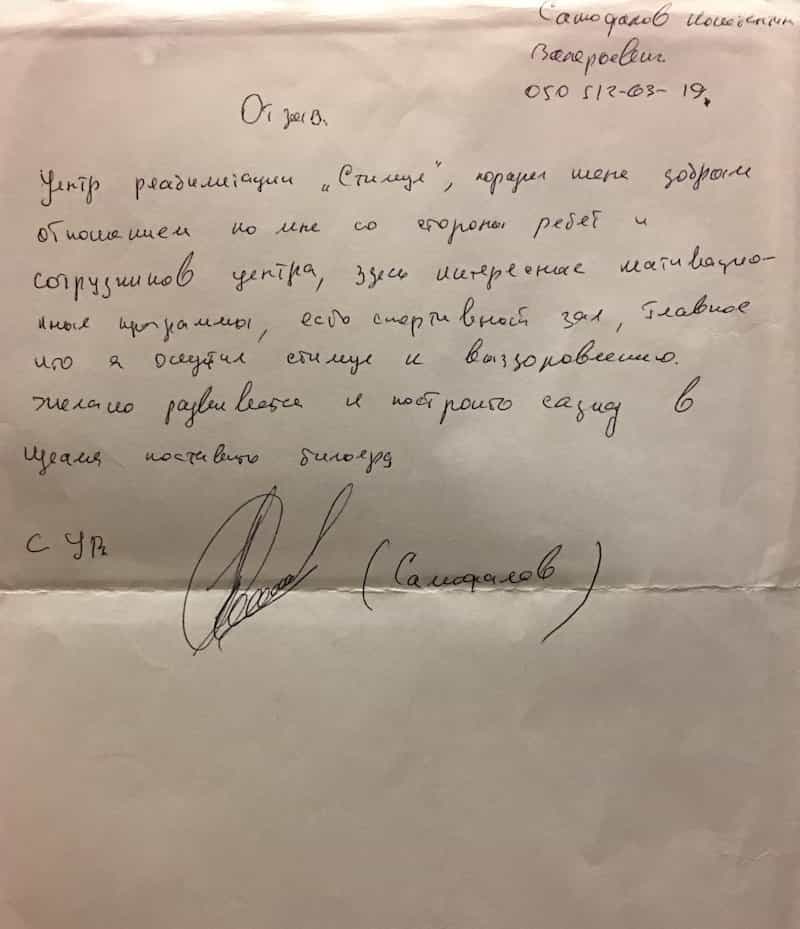 Самофалов Константин
Валерьевич.
050 512-63-19.
Отзыв.
Центр реабилитации „Стимул“, поразил меня добрым
отношением ко мне со стороны ребят и
сотрудников центра, здесь интересные мативацио-
нные программы, есть спортивный зал, Главное
что я ощутил стимул к выздоровлению.
Желаю развиватся и построить
поставить бильярд
С Ув
(Самофалов)